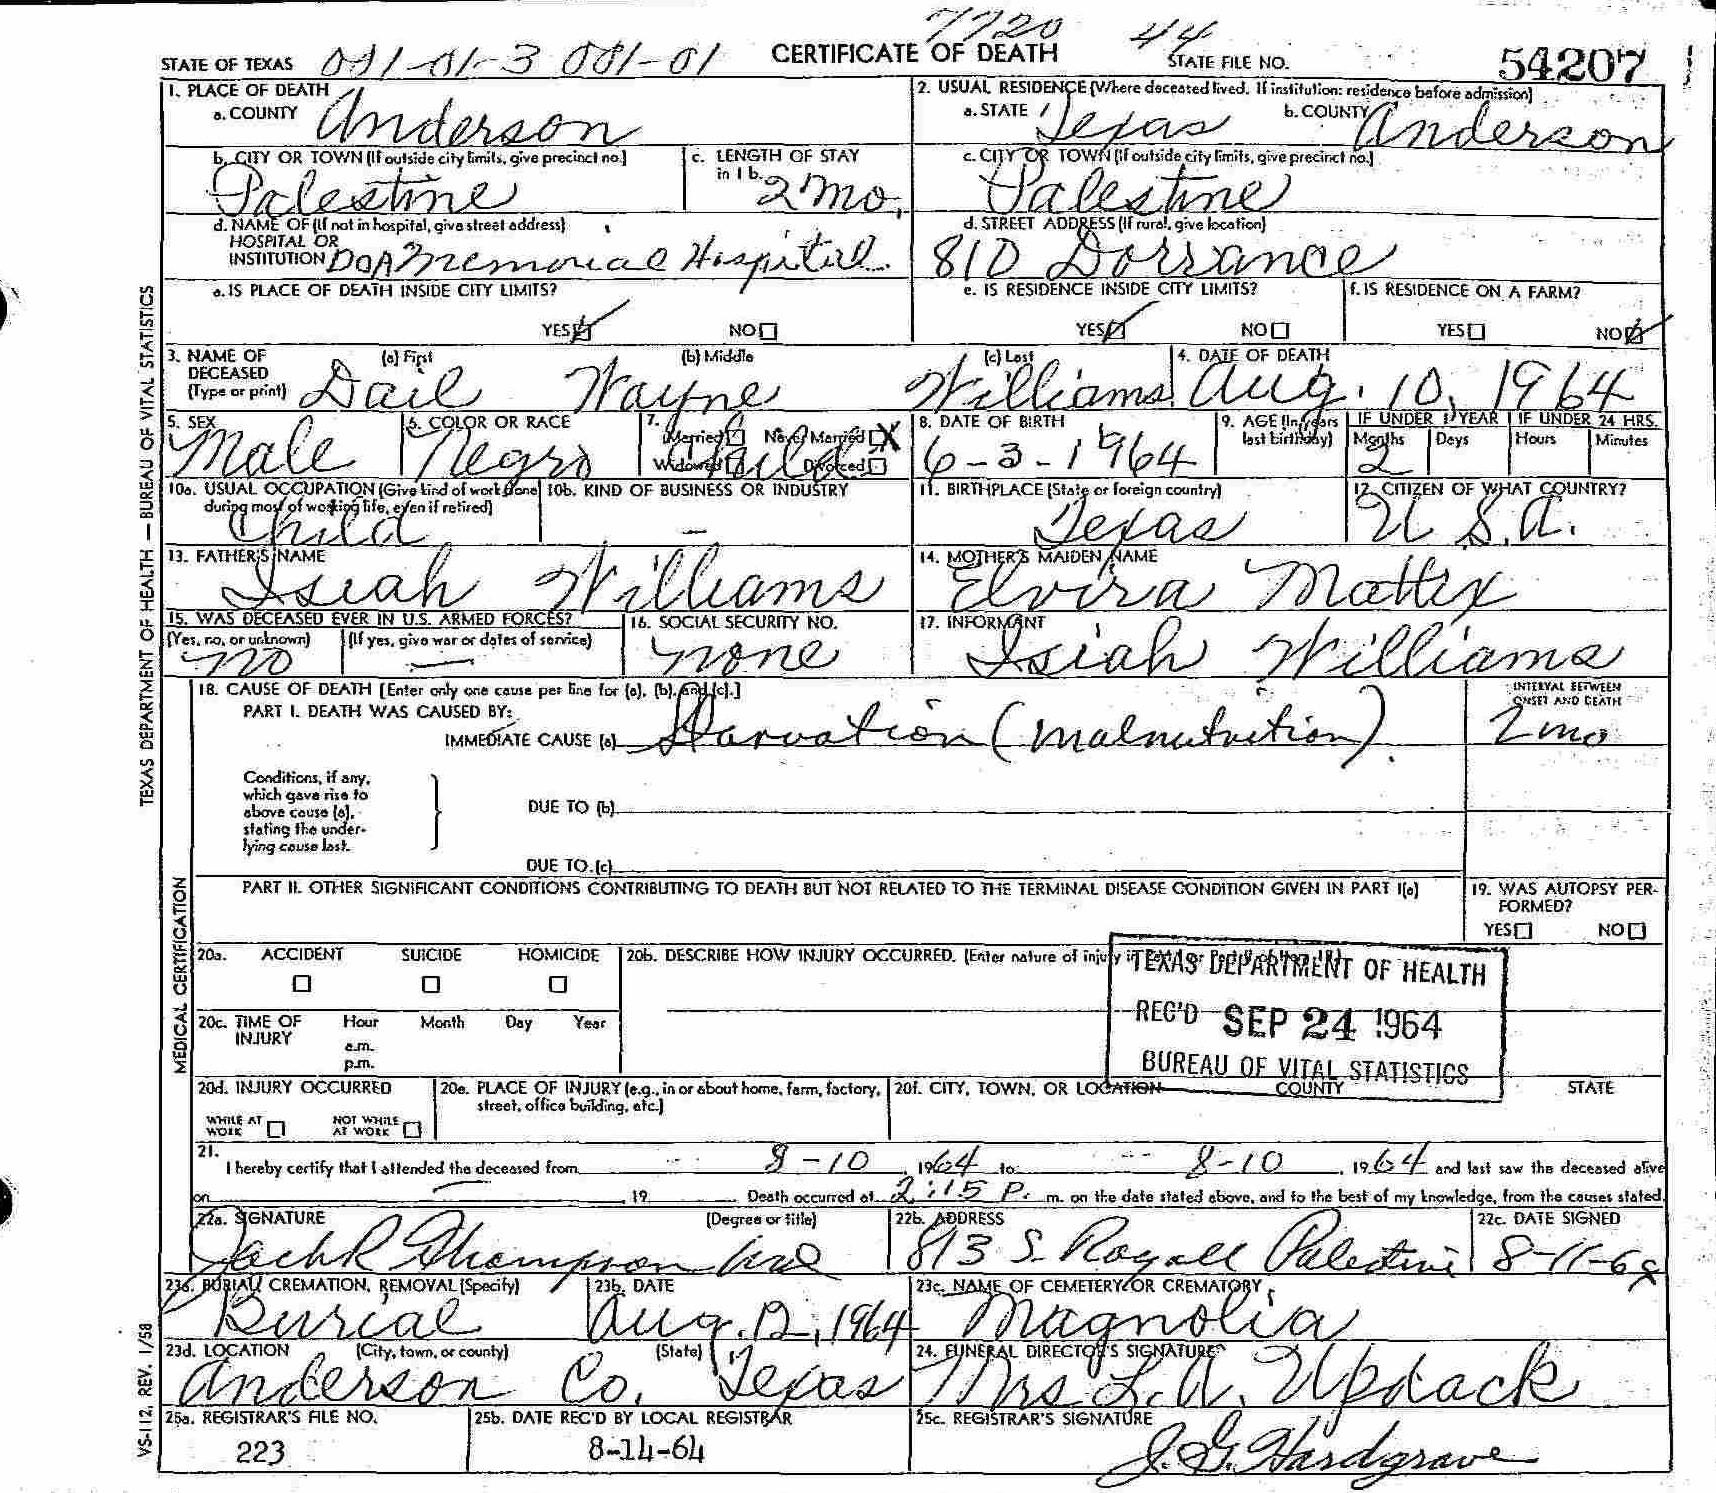 7720 44
STATE OF TEXAS 001-01-3 001-01 CERTIFICATE OF DEATH STATE FILE NO. 54207
1. PLACE OF DEATH
a. COUNTY Anderson
2. USUAL RESIDENCE (Where deceased lived. If institution: residence before admission)
a. STATE Texas b. COUNTY Anderson
b. CITY OR TOWN (If outside city limits, give precinct no.) Palestine
c. LENGTH OF STAY in 1 b. 2 Mo.
c. CITY OR TOWN (If outside city limits, give precinct no.) Palestine
d. NAME OF (If not in hospital, give street address)
HOSPITAL OR
INSTITUTION DOA Memorial Hospital
d. STREET ADDRESS (If rural, give location)
810 Dorrance
e. IS PLACE OF DEATH INSIDE CITY LIMITS?
YES NO
e. IS RESIDENCE INSIDE CITY LIMITS?
YES NO
f. IS RESIDENCE ON A FARM?
YES NO
3. NAME OF DECEASED (Type or print)
(a) First (b) Middle (c) Last
Dail Wayne Williams
4. DATE OF DEATH
Aug. 10, 1964
5. SEX
Male
6. COLOR OR RACE
Negro
7. Married Never Married X
Widowed Divorced
Child
8. DATE OF BIRTH
6-3-1964
9. AGE (In years last birthday)
IF UNDER 1 YEAR IF UNDER 24 HRS.
Months Days Hours Minutes
2
10a. USUAL OCCUPATION (Give kind of work done during most of working life, even if retired)
Child
10b. KIND OF BUSINESS OR INDUSTRY
—
11. BIRTHPLACE (State or foreign country)
Texas
12. CITIZEN OF WHAT COUNTRY?
U.S.A.
13. FATHER'S NAME
Isiah Williams
14. MOTHER'S MAIDEN NAME
Elvira Mattix
15. WAS DECEASED EVER IN U.S. ARMED FORCES?
(Yes, no, or unknown) (If yes, give war or dates of service)
no —
16. SOCIAL SECURITY NO.
none
17. INFORMANT
Isiah Williams
18. CAUSE OF DEATH [Enter only one cause per line for (a), (b), and (c).]
INTERVAL BETWEEN ONSET AND DEATH
PART I. DEATH WAS CAUSED BY:
IMMEDIATE CAUSE (a) Starvation (Malnutrition). 2 mo
Conditions, if any,
which gave rise to
above cause (a),
stating the under-
lying cause last.
DUE TO (b)
DUE TO (c)
PART II. OTHER SIGNIFICANT CONDITIONS CONTRIBUTING TO DEATH BUT NOT RELATED TO THE TERMINAL DISEASE CONDITION GIVEN IN PART I(a)
19. WAS AUTOPSY PER-
FORMED?
YES NO
20a. ACCIDENT SUICIDE HOMICIDE
20b. DESCRIBE HOW INJURY OCCURRED. (Enter nature of injury
TEXAS DEPARTMENT OF HEALTH
REC'D SEP 24 1964
BUREAU OF VITAL STATISTICS
20c. TIME OF INJURY Hour Month Day Year
a.m.
p.m.
20d. INJURY OCCURRED
WHILE AT WORK NOT WHILE AT WORK
20e. PLACE OF INJURY (e.g., in or about home, farm, factory, street, office building, etc.)
20f. CITY, TOWN, OR LOCATION COUNTY STATE
21.
I hereby certify that I attended the deceased from 8-10, 1964 to 8-10, 1964 and last saw the deceased alive
on —, 19 . Death occurred at 2:15 P. m. on the date stated above, and to the best of my knowledge, from the causes stated.
22a. SIGNATURE (Degree or title)
Jack R Thompson
22b. ADDRESS
813 S. Royall Palestine
22c. DATE SIGNED
8-11-64
23a. BURIAL, CREMATION, REMOVAL (Specify)
Burial
23b. DATE
Aug. 12, 1964
23c. NAME OF CEMETERY OR CREMATORY
Magnolia
23d. LOCATION (City, town, or county) (State)
Anderson Co. Texas
24. FUNERAL DIRECTOR'S SIGNATURE
Mrs L.A. Updack
25a. REGISTRAR'S FILE NO.
223
25b. DATE REC'D BY LOCAL REGISTRAR
8-14-64
25c. REGISTRAR'S SIGNATURE
J. G. Hardgrave
TEXAS DEPARTMENT OF HEALTH — BUREAU OF VITAL STATISTICS
MEDICAL CERTIFICATION
VS-112, REV. 1/58